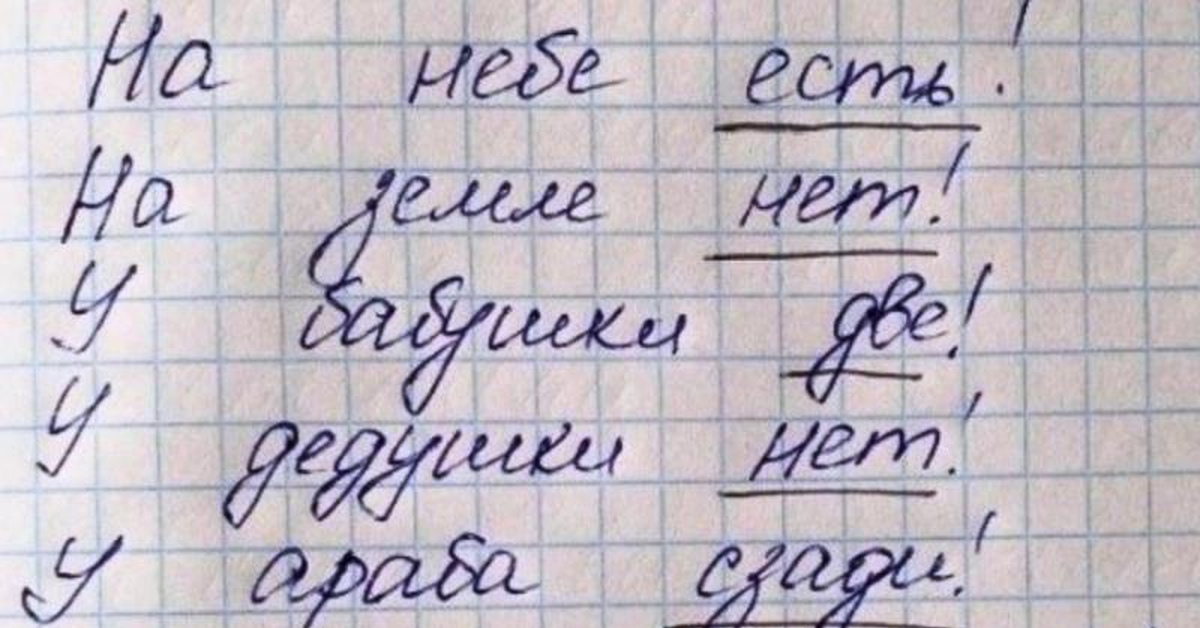 На небе есть!
На земле нет!
У бабушки две!
У дедушки нет!
У араба сзади!